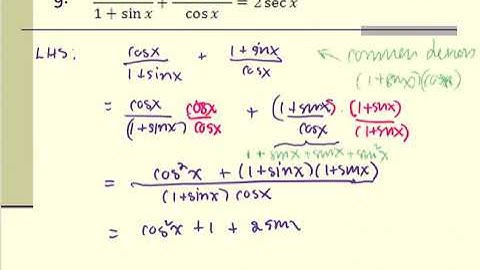 1 + sin x + cos x = 2 sec x
LHS: cosx/1+sinx + 1+sinx/cosx ← common denom
(1+sinx)(cosx)
= cosx/(1+sinx) cosx/cosx + (1+sinx)/cosx · (1+sinx)/(1+sinx)
1+sinx+sinx+sin²x
= cos²x + (1+sinx)(1+sinx)/(1+sinx) cosx
= cos²x + 1 + 2sinx